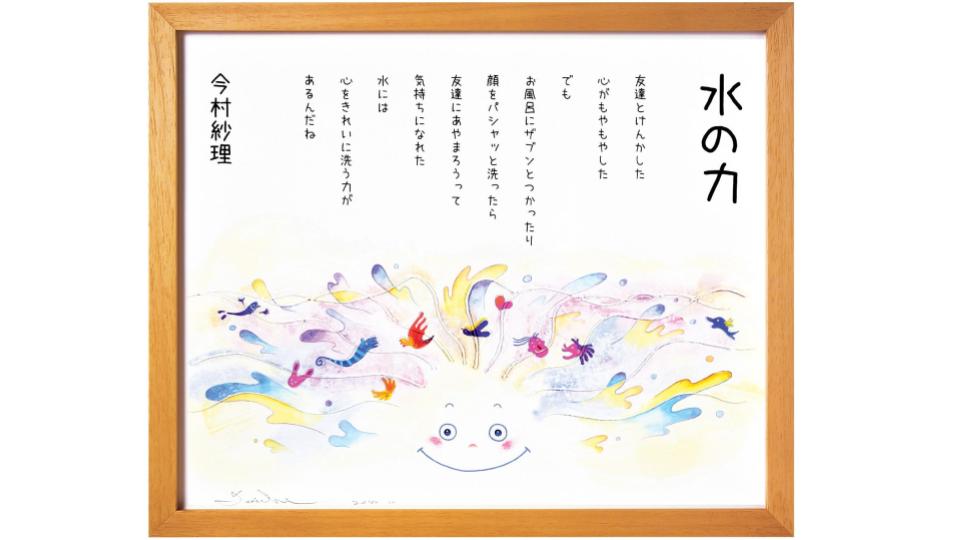 水の力
友達とけんかした
心がもやもやした
でも
お風呂にザブンとつかったり
顔をパシャッと洗ったら
友達にあやまろうって
気持ちになれた
水には
心をきれいに洗う力が
あるんだね
今村紗理